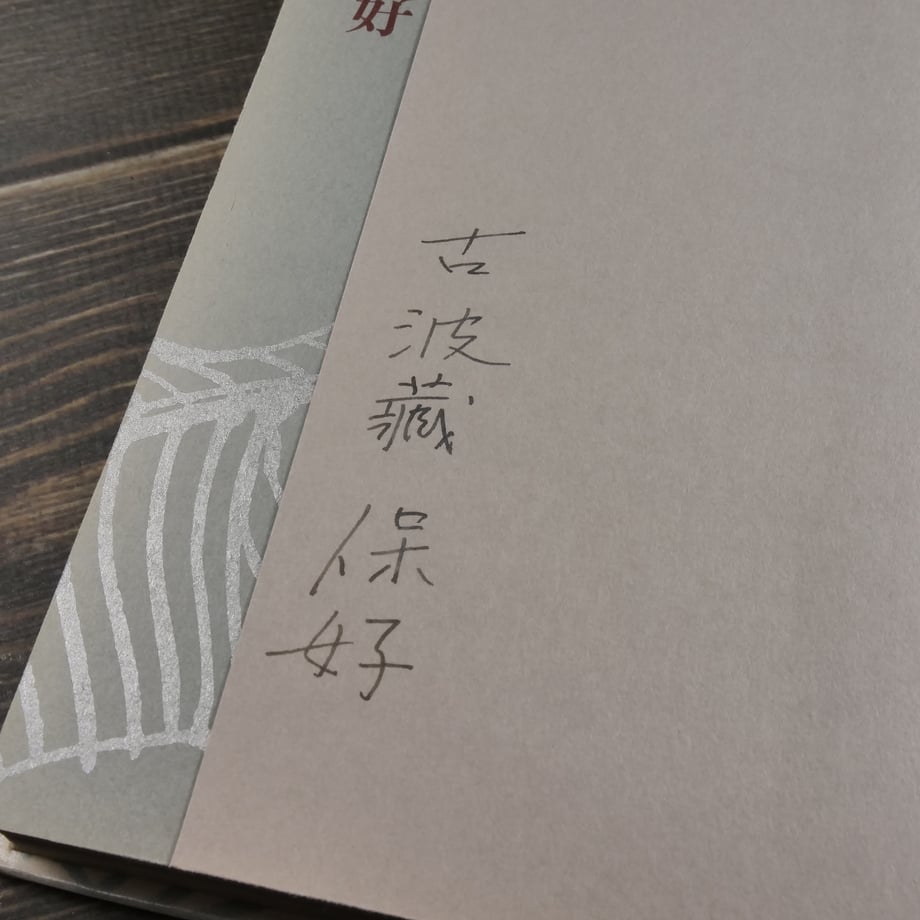 好
古波藏
保好